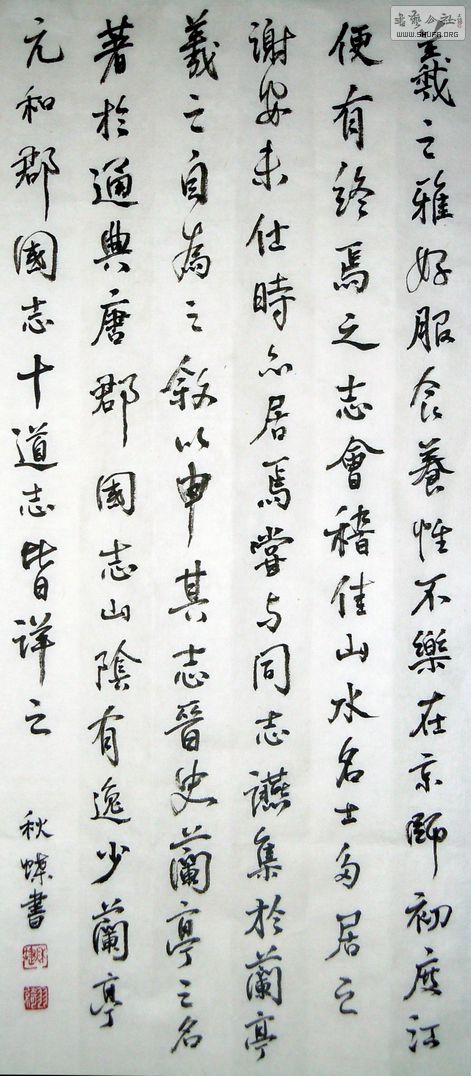 羲之雅好服食養性不樂在京師初度江
便有終焉之志會稽佳山水名士多居之
謝安未仕時亦居焉嘗与同志讌集於蘭亭
羲之自為之敘以申其志晉史蘭亭之名
著於通典唐郡國志山陰有逸少蘭亭
元和郡國志十道志皆詳之
秋蝶書
書藝公社
WWW.SHUFA.ORG